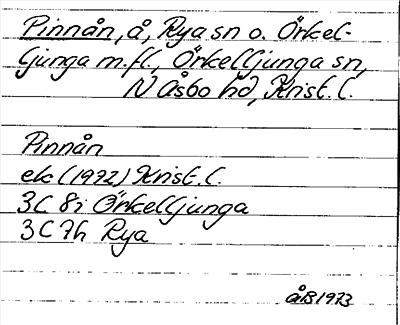 Pinnån, å, Rya sn o. Örkel-
ljunga m.fl., Örkelljunga sn,
N Åsbo hd, Krist. l.
Pinnån
ek (1972) Krist. l.
3C 8i Örkelljunga
3C 7h Rya
ÅB 1973